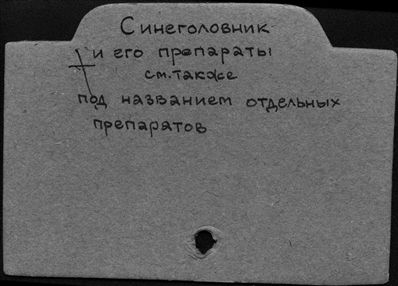 Синеголовник
и его препараты
см. также
под названием отдельных
препаратов